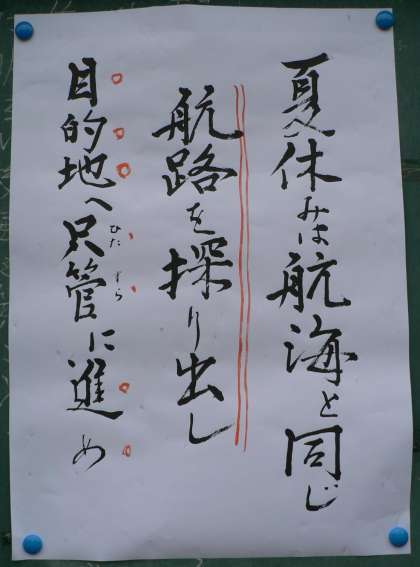 夏休みは航海と同じ
航路を探り出し
目的地へ只管に進め
ひたすら